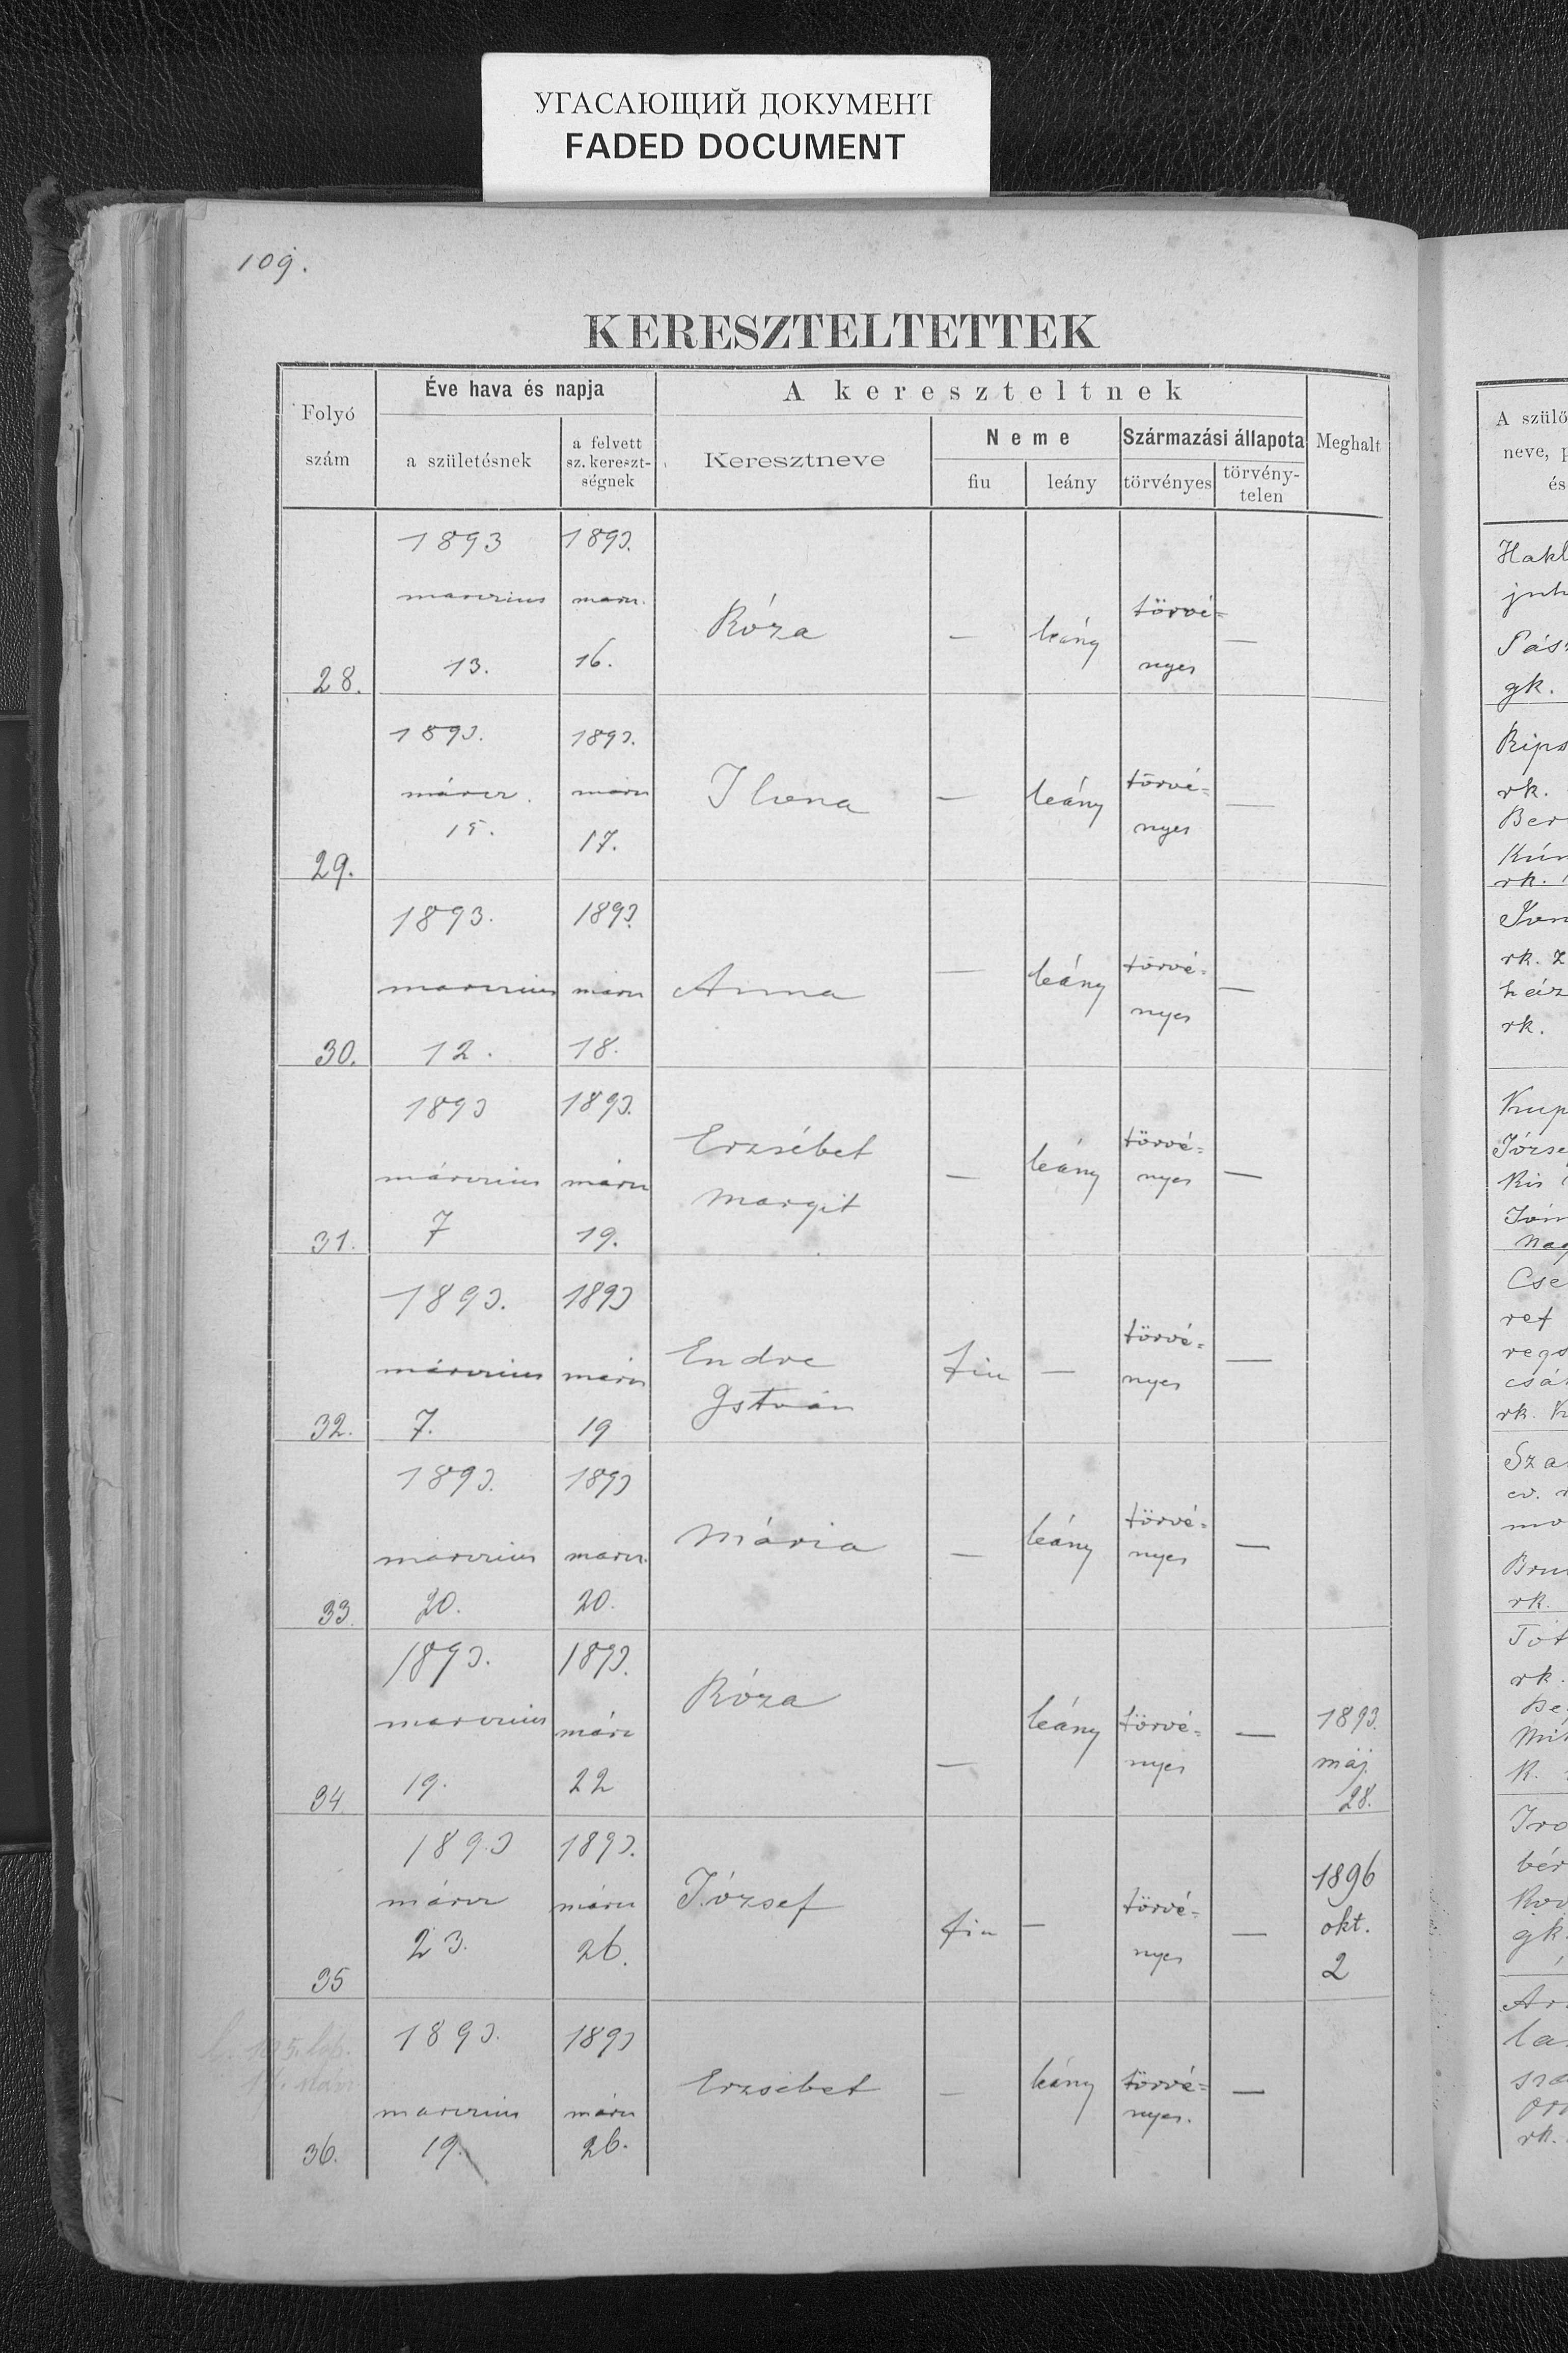 УГАСАЮЩИЙ ДОКУМЕНТ
FADED DOCUMENT
109.
KERESZTELTETTEK
Folyó
szám
Éve hava és napja
a születésnek
a felvett
sz. kereszt-
ségnek
A kereszteltnek
Keresztneve
Neme
fiu
leány
Származási állapota
törvényes
törvény-
telen
Meghalt
28.
1893
marczius
13.
1893.
marcz.
16.
Róza
—
leány
törvé=
nyes
—
29.
1893.
márcz.
15.
1893.
márcz
17.
Ilona
—
leány
törvé=
nyes
—
30.
1893.
marczius
12.
1893
márcz
18.
Anna
—
leány
törvé=
nyes
—
31.
1893
márczius
7
1893.
márcz
19.
Erzsébet
Margit
—
leány
törvé=
nyes
—
32.
1893.
márczius
7.
1893
márcz
19
Endre
István
fiu
—
törvé=
nyes
—
33.
1893.
marczius
20.
1893
marcz.
20.
Mária
—
leány
törvé=
nyes
—
34
1893.
marczius
19.
1893.
márc
22
Róza
—
leány
törvé=
nyes
—
1893.
máj.
28.
35
1893
márcz
23.
1893.
márcz
26.
József
fiu
—
törvé=
nyes
—
1896
okt.
2
36.
1893.
marczius
19.
1893
márcz
26.
Erzsébet
—
leány
törvé=
nyes.
—
A szülő
neve, p
és
Hakl
juh
Pás
gk.
Rips
rk.
Ber
Kún
rk.
rk. z
ház
rk.
Krup
Józse
Kis
Nag
Cse
ref
regs
csá
rk. K
Sza
ev.
mo
rk.
Tót
rk.
Mih
K.
bér
gk.
la
rk.